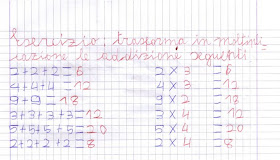 Esercizio: trasforma in moltipli-
cazione le addizioni seguenti
2+2+2=6 2 x 3 = 6
4+4+4=12 4 x 3 = 12
9+9=18 9 x 2 = 18
3+3+3+3=12 3 x 4 = 12
5+5+5+5=20 5 x 4 = 20
2+2+2+2=8 2 x 4 = 8